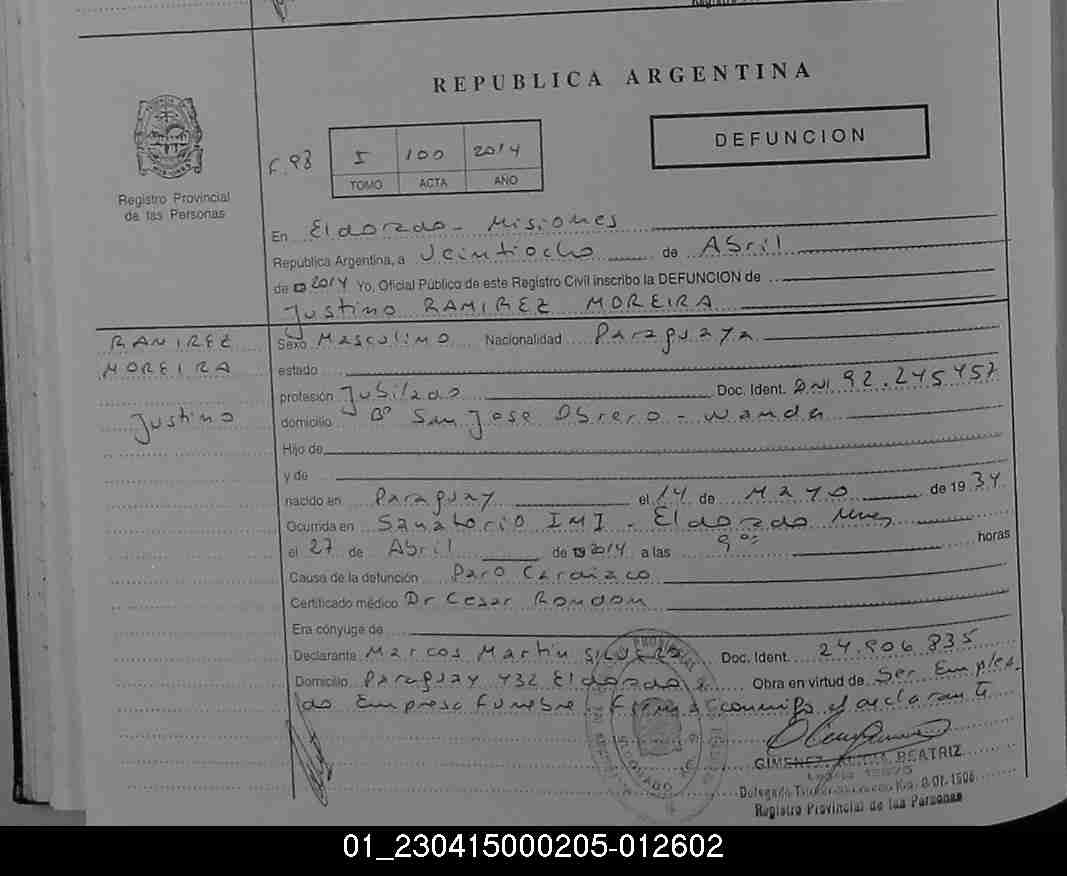 REPUBLICA ARGENTINA
DEFUNCION
F.98
I 100 2014
TOMO ACTA AÑO
Registro Provincial
de las Personas
En Eldorado - Misiones
República Argentina, a Veintiocho de Abril
de 2014 Yo, Oficial Público de este Registro Civil inscribo la DEFUNCION de
Justino RAMIREZ MOREIRA
RAMIREZ
MOREIRA
Justino
Sexo Masculino Nacionalidad Paraguaya
estado
profesión Jubilado Doc. Ident. DNI 92.245457
domicilio Bº San Jose Obrero - Wanda
Hijo de
y de
nacido en Paraguay el 14 de MAYO de 1934
Ocurrida en Sanatorio IMI - Eldorado Mnes
el 27 de Abril de 2014 a las 9 00 horas
Causa de la defunción Paro Cardiaco
Certificado médico Dr Cesar Rondon
Era cónyuge de
Declarante Marcos Martin Doc. Ident. 24.906.835
Domicilio Paraguay 432 Eldorado Obra en virtud de Ser Emplea
do Empresa Funebre Firma conmigo el declarante
GIMENEZ BEATRIZ
Registro Provincial de las Personas
01_230415000205-012602